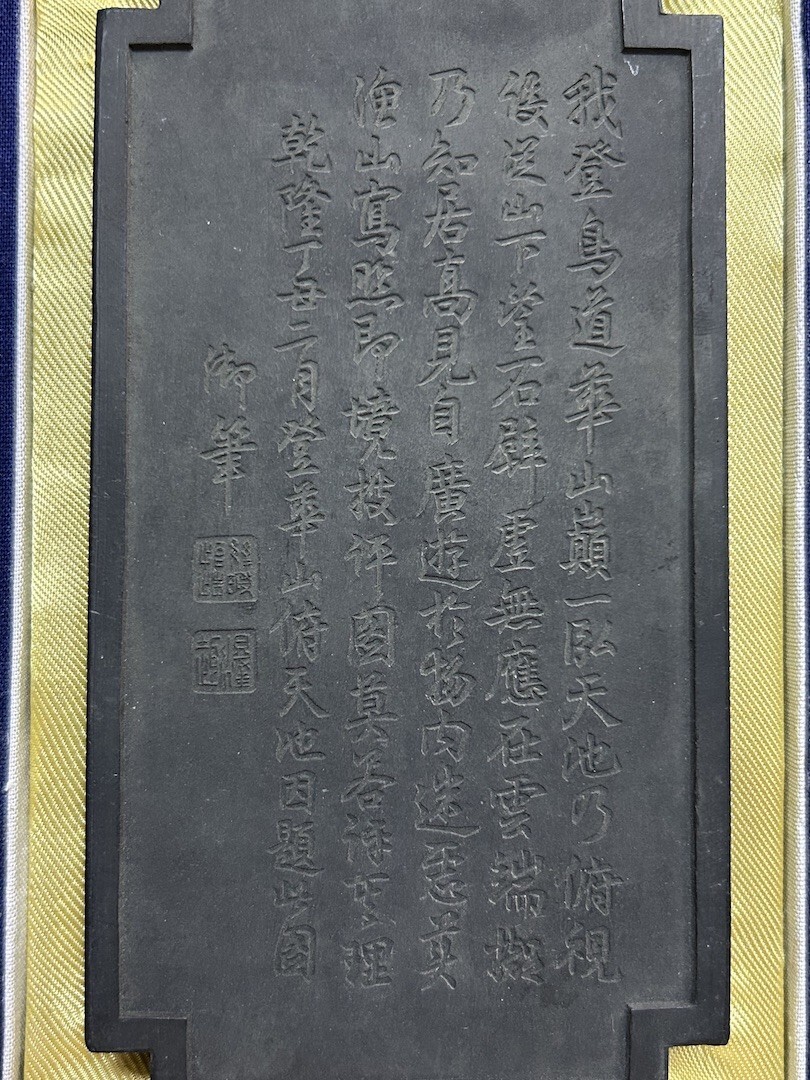 我登鳥道華山巔一泓天池乃俯視
設從山下望石壁虛無應在雲端擬
乃知居高見自廣遊於物內迷惡美
漁山寫照即境披評圖莫若評理
乾隆丁丑二月登華山俯天池因題此圖
御筆